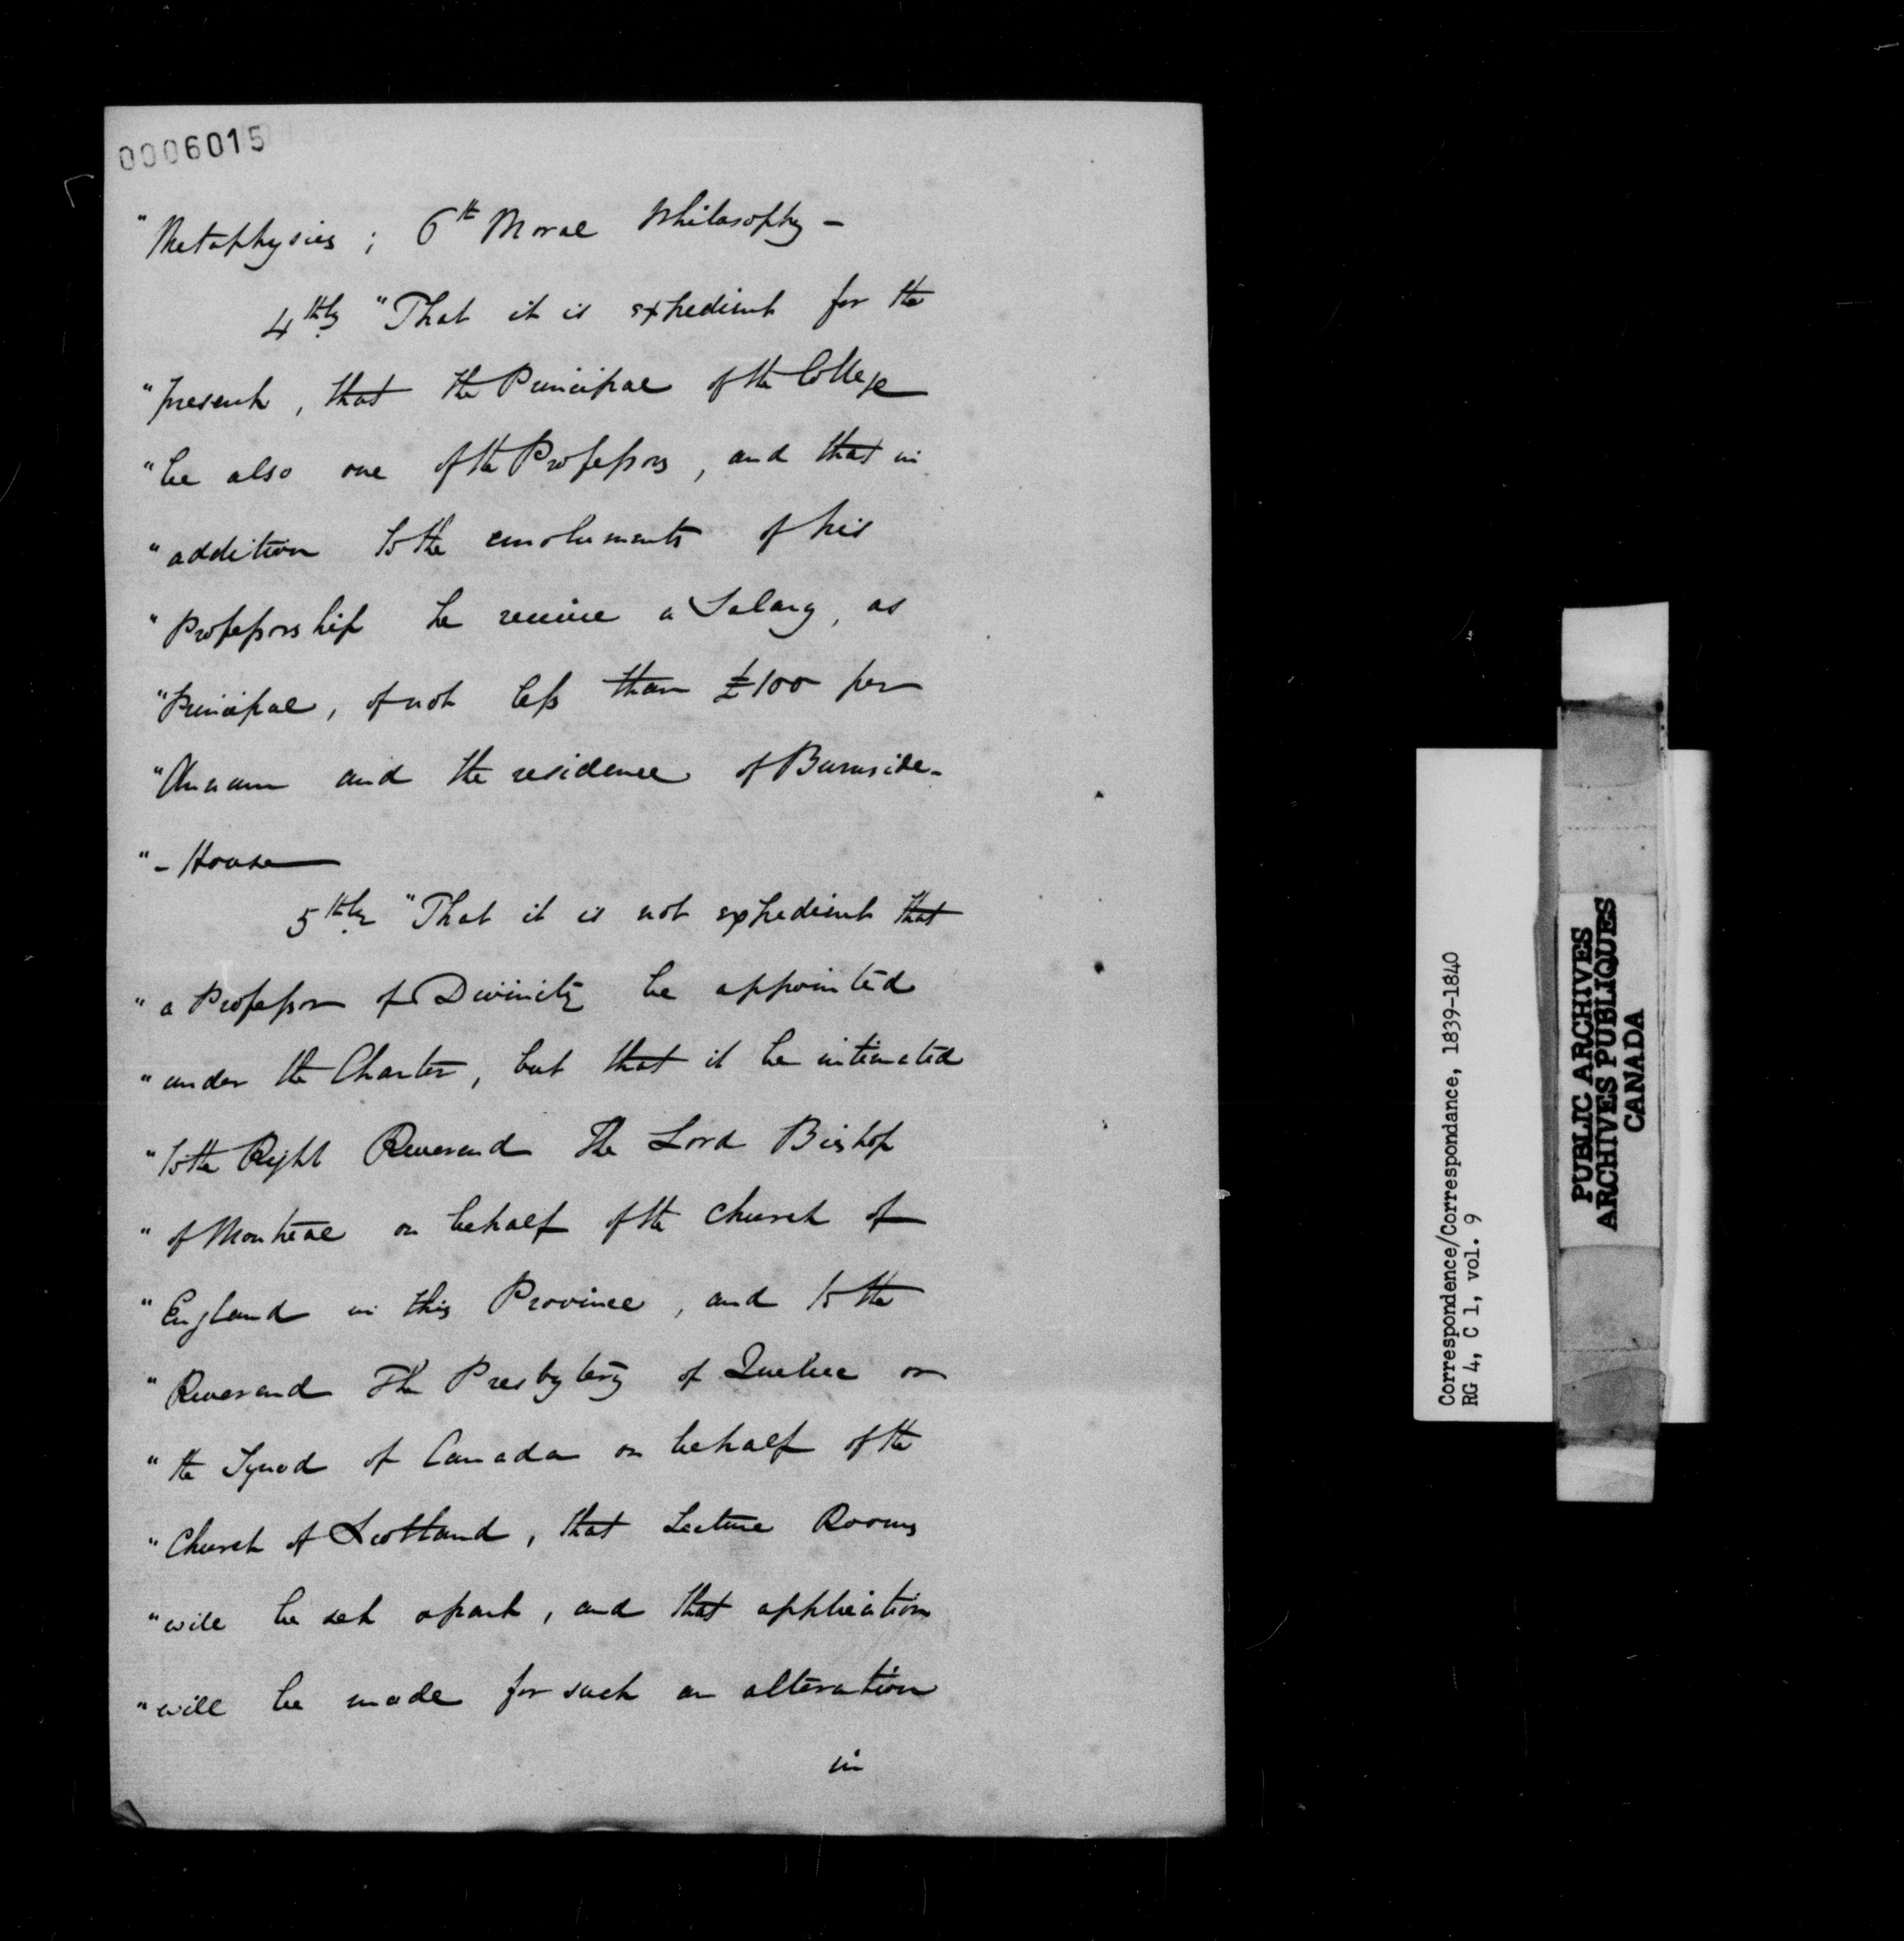 0006015
"Metaphysics; 6th Moral Philosophy -
4thly "That it is expedient for the
"present, that the Principal of the College
"be also one of the Professors, and that in
"addition to the emoluments of his
"Professorship he receive a Salary, as
"Principal, of not less than £100 per
"Annum and the residence of Burnside-
"- House
5thly "That it is not expedient that
"a Professor of Divinity be appointed
"under the Charter, but that it be intimated
"to the Right Reverend The Lord Bishop
"of Montreal on behalf of the Church of
"England in this Province, and to the
"Reverend The Presbytery of Quebec or
"the Synod of Canada on behalf of the
"Church of Scotland, that Lecture Rooms
"will be set apart, and that application
"will be made for such an alteration
in
Correspondence/Correspondance, 1839-1840
RG 4, C 1, vol. 9
PUBLIC ARCHIVES
ARCHIVES PUBLIQUES
CANADA